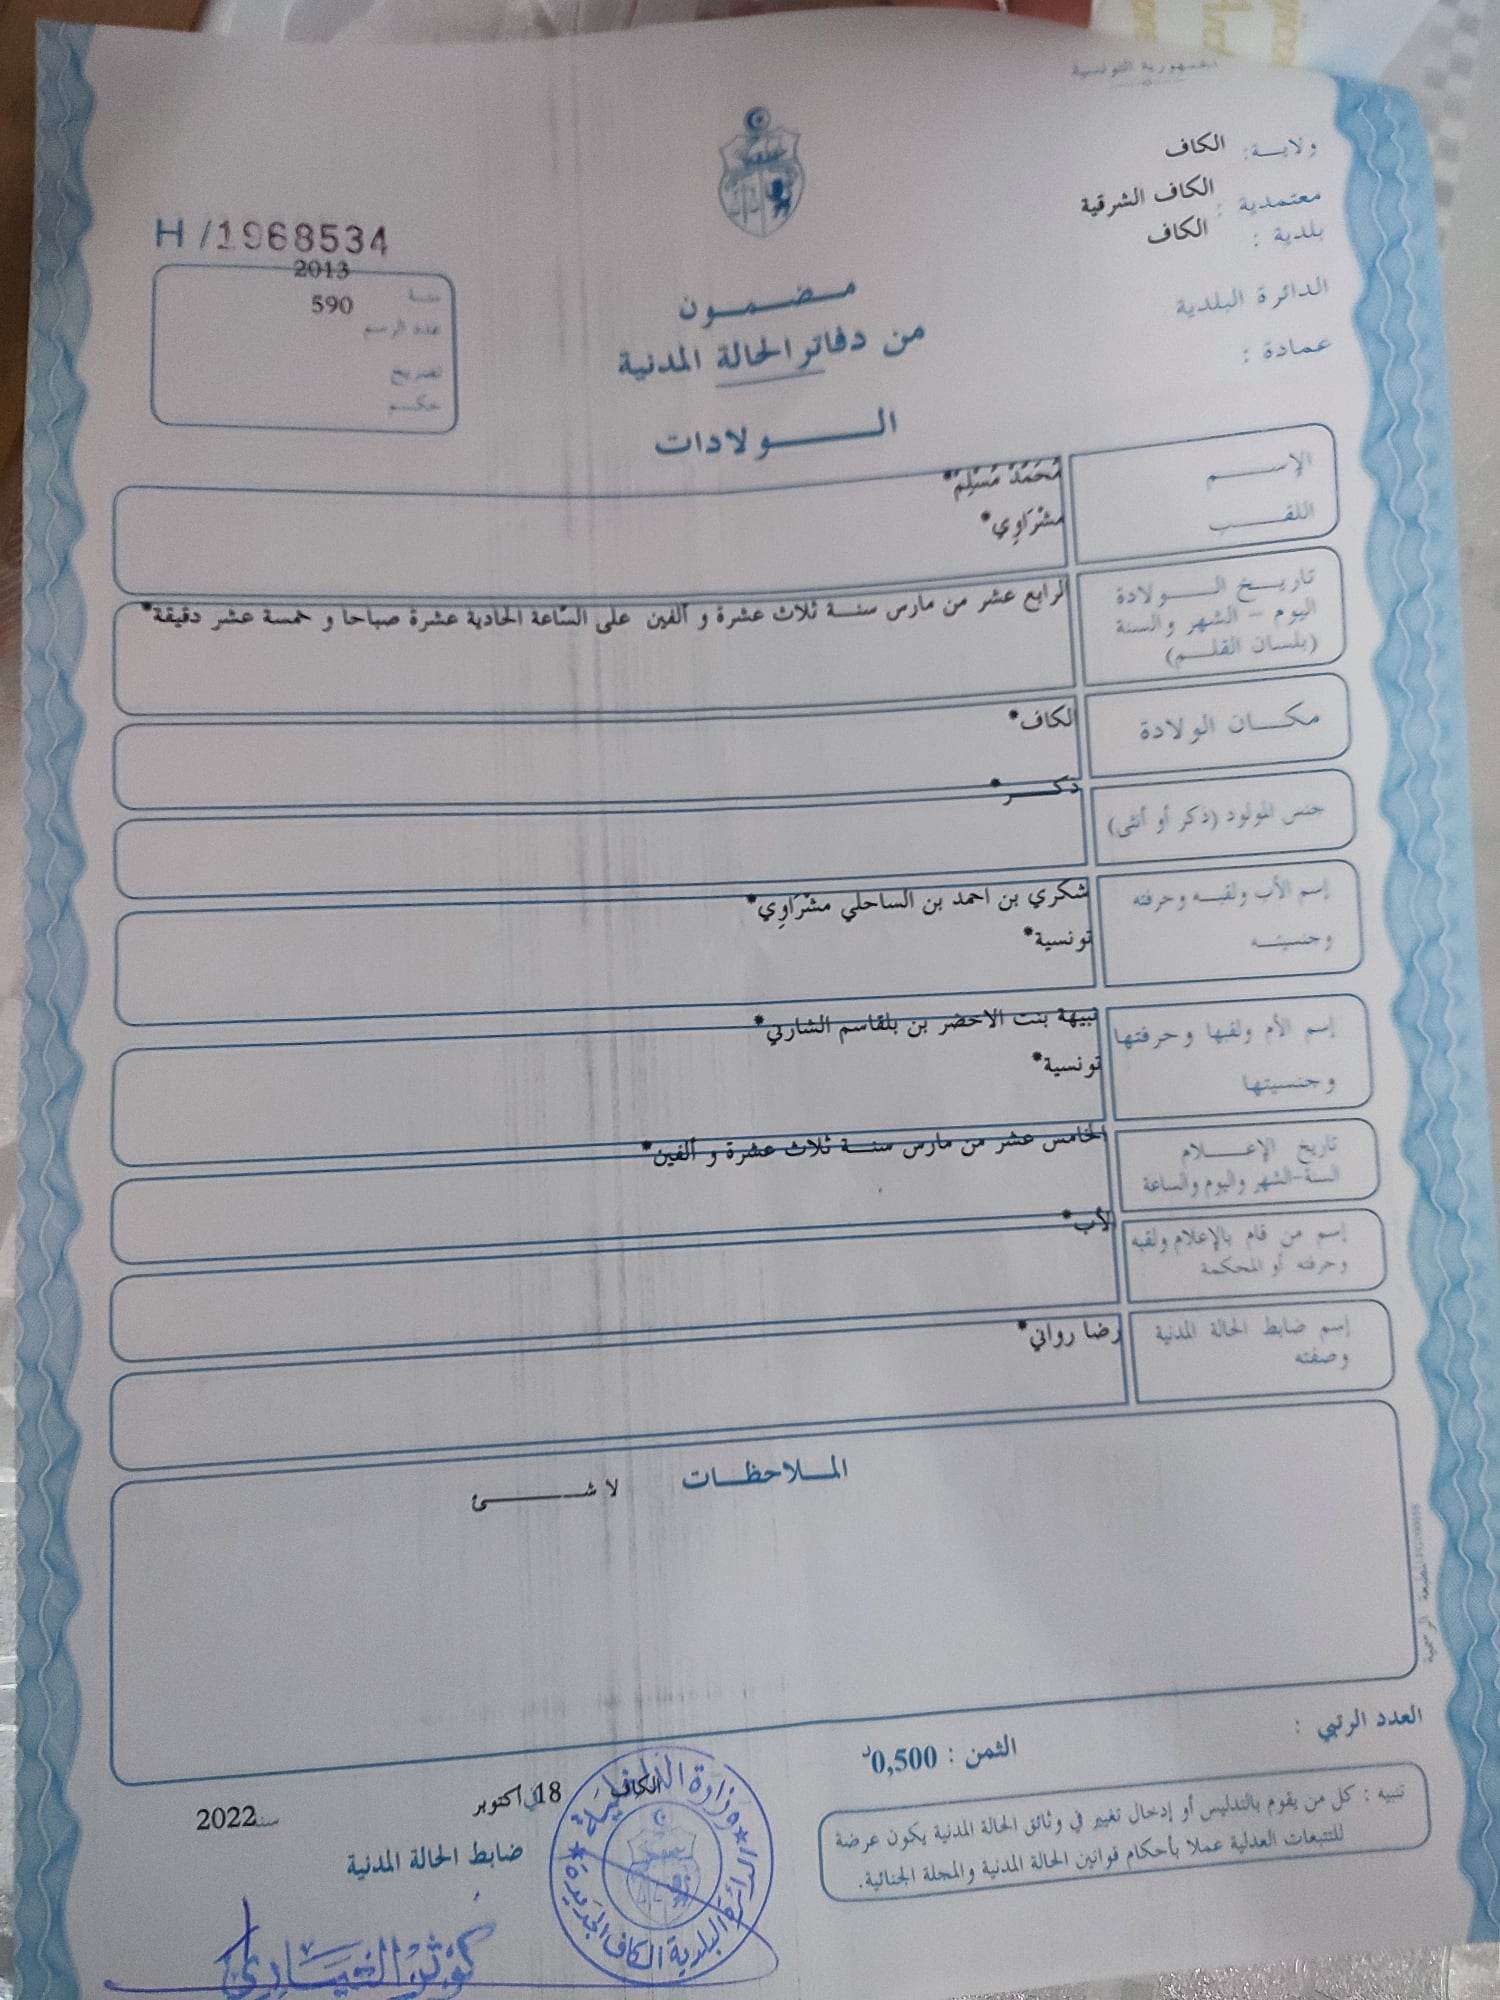 الجمهورية التونسية
ولاية: الكاف
معتمدية : الكاف الشرقية
بلدية : الكاف
الدائرة البلدية
عمادة :
H /1968534
سنة 2013
عدد الرسم 590
تصريح
حكم
مضمون
من دفاتر الحالة المدنية
الولادات
الإسم مُحَمَّدْ مُسْلِمْ*
اللقب مشْرَاوِي*
تاريخ الولادة
اليوم - الشهر والسنة
(بلسان القلم)
الرابع عشر من مارس سنة ثلاث عشرة و ألفين على السّاعة الحادية عشرة صباحا و خمسة عشر دقيقة*
مكان الولادة الكاف*
جنس المولود (ذكر أو أنثى) ذكر*
إسم الأب ولقبه وحرفته شكري بن احمد بن الساحلي مشْرَاوِي*
وجنسيته تونسية*
إسم الأم ولقبها وحرفتها نبيهة بنت الاخضر بن بلقاسم الشارني*
وجنسيتها تونسية*
تاريخ الإعلام الخامس عشر من مارس سنة ثلاث عشرة و ألفين*
السنة-الشهر واليوم والساعة
إسم من قام بالإعلام ولقبه الأب*
وحرفته أو المحكمة
إسم ضابط الحالة المدنية رضا رواني*
وصفته
الملاحظات لا شئ
المطبعة الرسمية
العدد الرتبي :
الثمن : 0,500د
تنبيه : كل من يقوم بالتدليس أو إدخال تغيير في وثائق الحالة المدنية يكون عرضة
للتتبعات العدلية عملا بأحكام قوانين الحالة المدنية والمجلة الجنائية.
الكاف في 18 اكتوبر سنة 2022
ضابط الحالة المدنية
وزارة الداخلية
الدائرة البلدية الكاف الجديدة